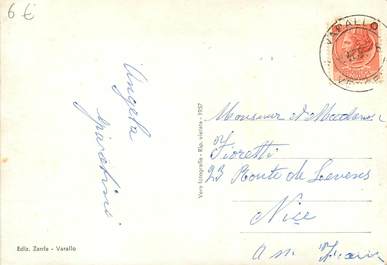 6 €
VARALLO
Angela
Monsieur et Madame
Fioretti
23 Route de Levens
Nice
Vera fotografia - Rip. vietata - 1957
Ediz. Zanfa - Varallo